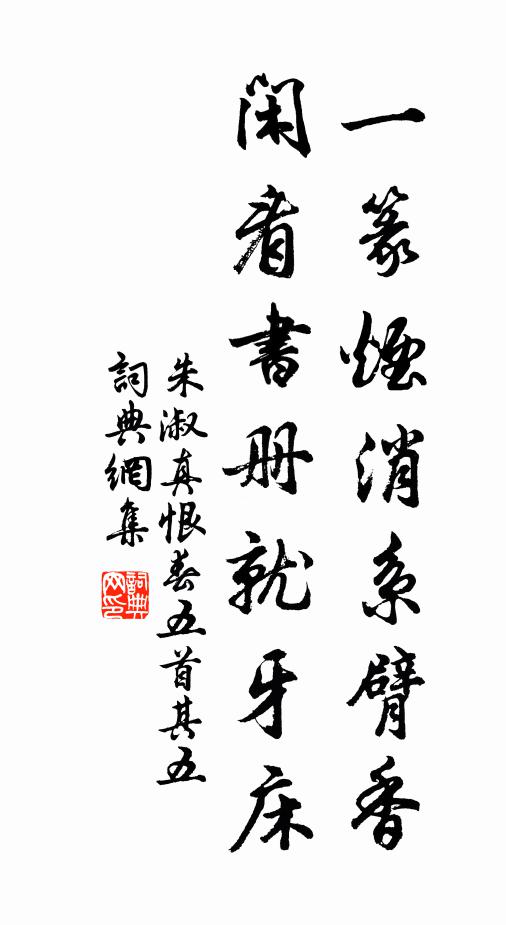 一篆煙消系臂香
闲看書册就牙床
朱淑真恨春五首其五
詞典網集
詞典网印